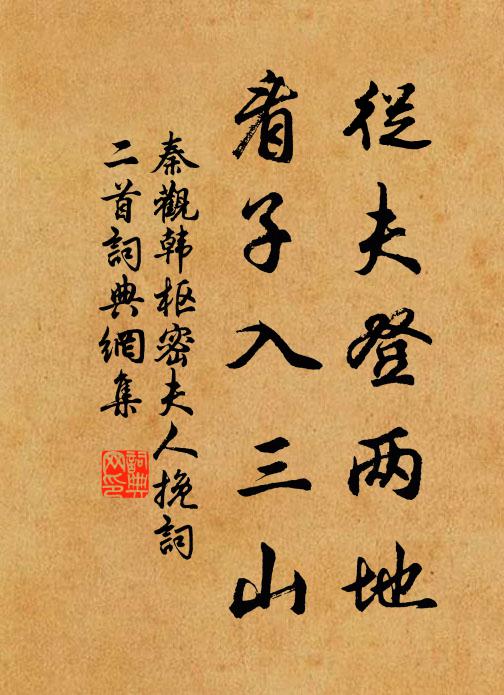 從夫登两地
看子入三山
秦觀韩枢密夫人挽詞
二首詞典網集
詞典
网印